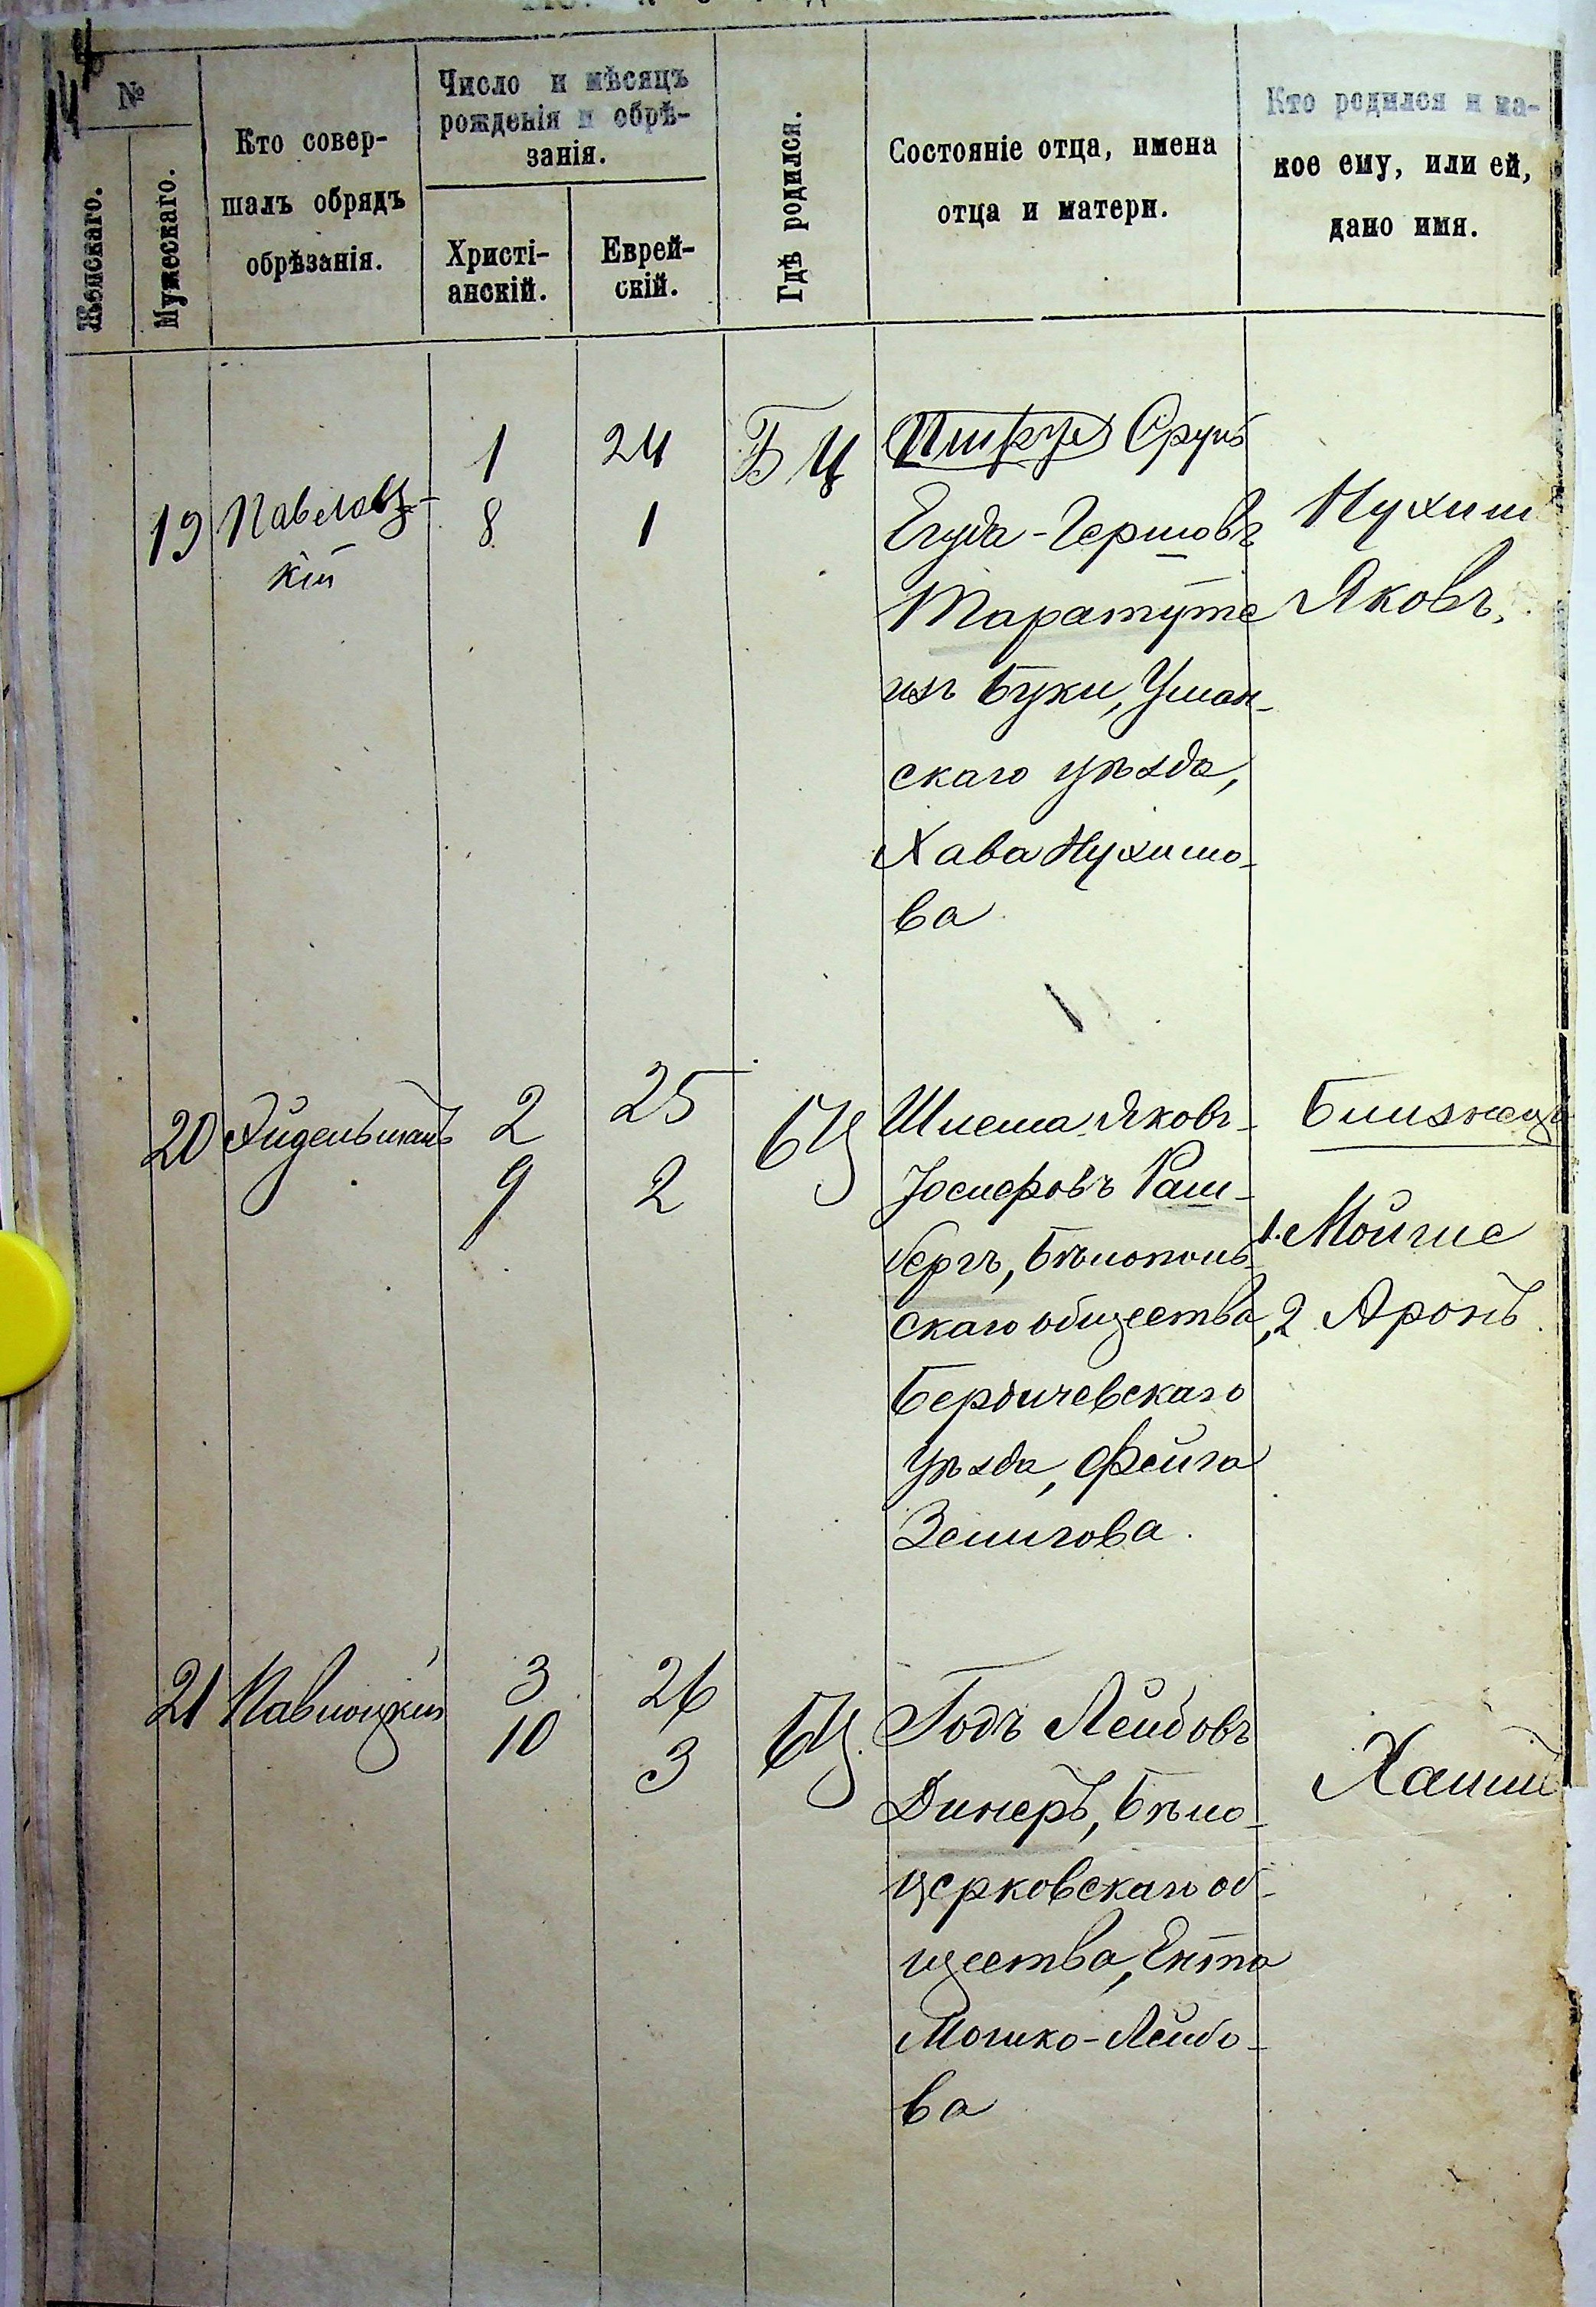 №
Женскаго.
Мужескаго.
Кто совер-
шалъ обрядъ
обрѣзанія.
Число и мѣсяцъ
рожденія и обрѣ-
занія.
Христі-
анскій.
Еврей-
скій.
Гдѣ родился.
Состояніе отца, имена
отца и матери.
Кто родился и ка-
кое ему, или ей,
дано имя.
19
Паволоц-
кій
1
8
24
1
БЦ
Сруль
Егуда-Гершовъ
Таратута
изъ Буки, Уман-
скаго уѣзда,
Хава Нухимо-
ва
Нухим
Яковъ.
20
Эйдельманъ
2
9
25
2
БЦ
Шлема Яковъ-
Іосифовъ Раш-
бергъ, Бѣлополь-
скаго общества,
Бердичевскаго
уѣзда, Фейга
Зелигова.
Близнецы
1. Мойше
2 Аронъ.
21
Павлоцкій
3
10
26
3
БЦ.
Годъ Лейбовъ
Динеръ, Бѣло-
церковскаго об-
щества, Ента
Мошко-Лейбо-
ва
Хаим